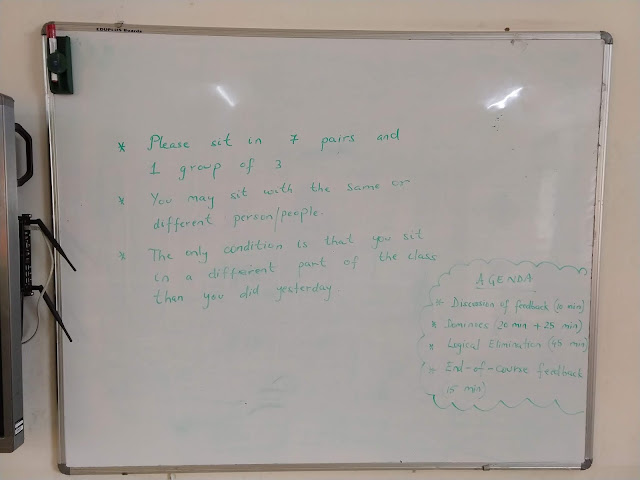 * Please sit in 7 pairs and
1 group of 3
* You may sit with the same or
different person/people.
* The only condition is that you sit
in a different part of the class
than you did yesterday.
AGENDA
* Discussion of feedback (10 min)
* (20 min + 25 min)
* Logical Elimination (45 min)
* End-of-course feedback
15 min)